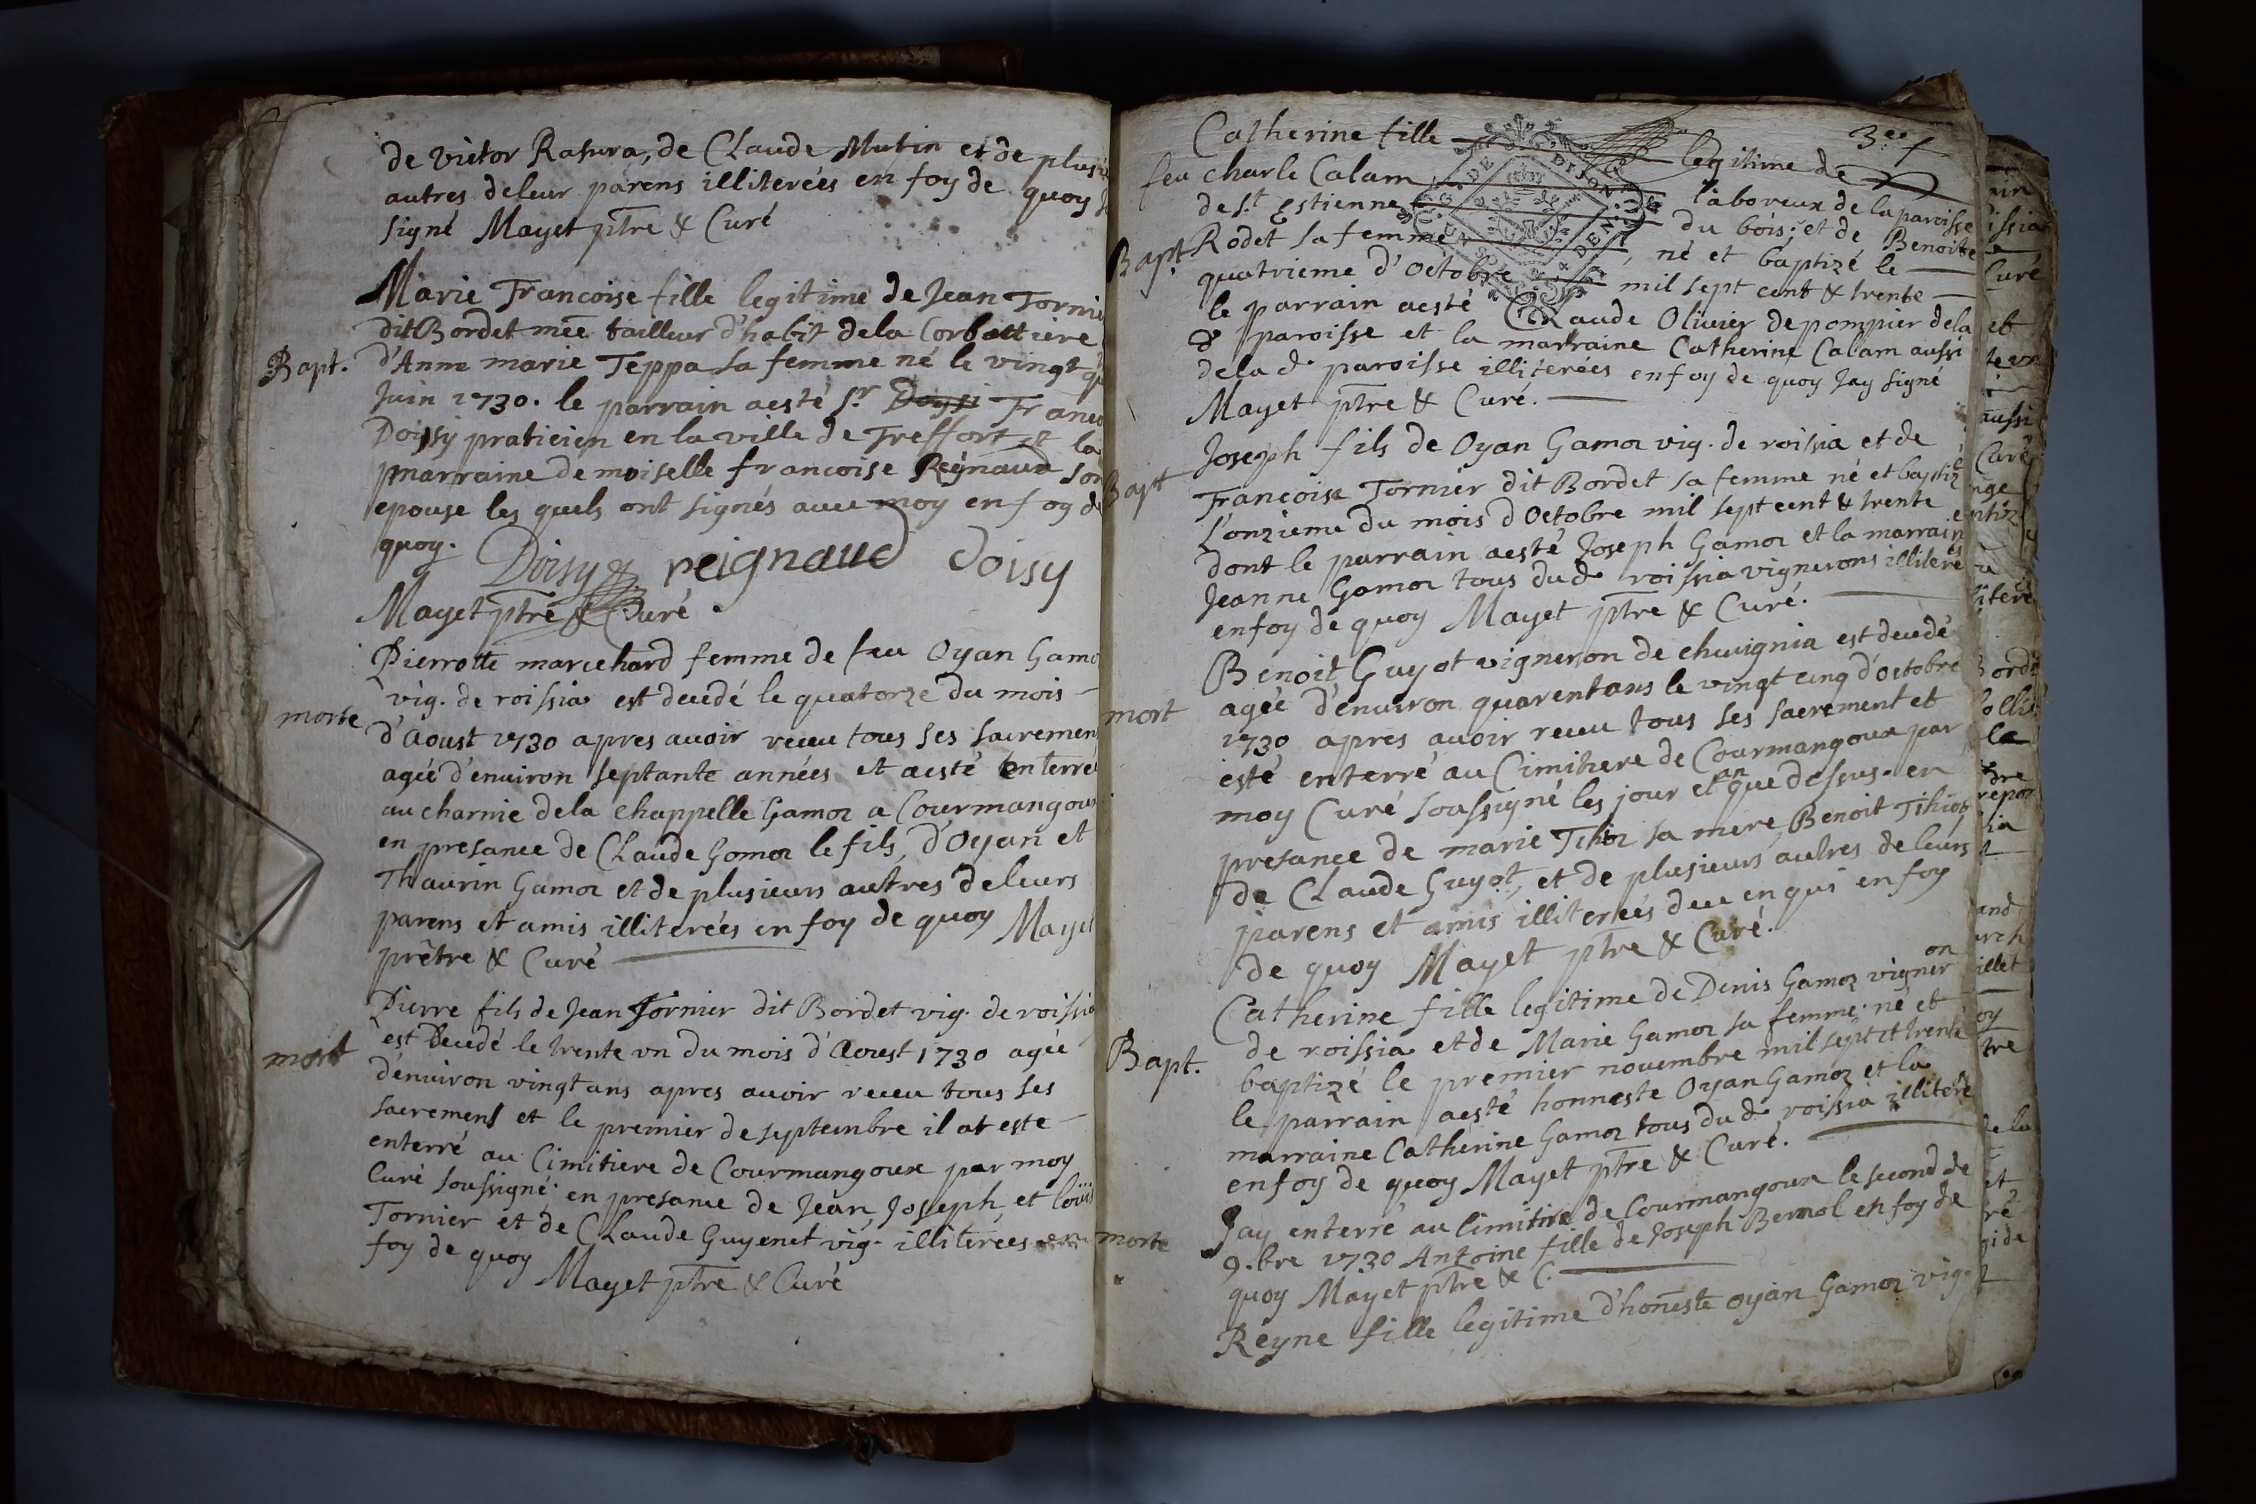 de victor Rasura, de Claude Mutin et de
autres de leur parens illiterées en foy de quoy
signé Mayet ptre & Curé
Marie Francoise fille legitime de Jean
dit Bordet tailleur d'habit de la
Bapt. d'Anne marie Teppa sa femme né le vingt
Juin 1730. le parrain aesté Sr. Doysi
Doisy praticien en la ville de Treffort et la
marraine demoiselle francoise Regnaud
epouse les quels ont signés avec moy en foy
quoy. Doisy reignaud doisy
Mayet ptre & Curé
Pierrotte marechard femme de feu Oyan
vig. de roissia est decedé le quatorze du mois
morte d'Aoust 1730 apres avoir receu tous ses
agée d'environ septante années et aesté enterré
au charnie dela chappelle Gamoz a Courmangoux
en presance de Claude Gamoz le fils d'Oyan et
Thaurin Gamoz et de plusieurs autres de leurs
parens et amis illiterées en foy de quoy Mayet
prêtre & Curé
Pierre fils de Jean Tornier dit Bordet vig. de roissia
mort est decedé le trente un du mois d'Aoust 1730 agée
d'environ vingt ans apres avoir receu tous ses
sacremens et le premier de septembre il at este
enterré au Cimitiere de Courmangoux par moy
Curé soussigné en presance de Jean Joseph et louis
Tornier et de Claude Guyenet vig. illiterées en
foy de quoy Mayet ptre & Curé
3.e
Catherine fille legitime de
feu charle Calam laboreux de la paroisse
de St. Estienne du bois, et de Benoite
Bapt. Rodet sa femme, né et baptizé le
quatrieme d'octobre mil sept cent & trente
le parrain aesté Claude Olivier de pompier dela
d. paroisse et la marraine Catherine Calam aussi
dela d. paroisse illiterées en foy de quoy Jay signé
Mayet ptre & Curé.
Joseph fils de Oyan Gamoz vig. de roissia et de
Bapt Françoise Tornier dit Bordet sa femme né et baptizé
l'onzieme du mois d'Octobre mil sept cent & trente
dont le parrain aesté Joseph Gamoz et la marraine
Jeanne Gamoz tous du d. roissia vignerons illiteré
en foy de quoy Mayet ptre & Curé.
Benoit Guyot vigneron de chevignia est decedé
mort agée d'environ quarent ans le vingt cinq d'octobre
1730 apres avoir receu tous ses sacrement et
esté enterré au Cimitiere de Courmangoux par
moy Curé soussigné les jour et an que dessus. en
presance de marie Tihoz sa mere, Benoit Tihioz
de Claude Guyot, et de plusieurs autres de leurs
parens et amis illiterées en foy
de quoy Mayet ptre & Curé.
Catherine fille legitime de Denis Gamoz vigneron
de roissia et de Marie Gamoz sa femme né et
Bapt. baptizé le premier novembre mil sept ct trente
le parrain aesté honneste Oyan Gamoz et la
marraine Catherine Gamoz tous du d. roissia illiteré
en foy de quoy Mayet ptre & Curé.
Jay enterré au Cimitire de Courmangoux le second de
morte 9.bre 1730 Antoine fille de Joseph Bernol en foy de
quoy Mayet ptre & C.
Reyne fille legitime d'honeste oyan Gamoz vig.